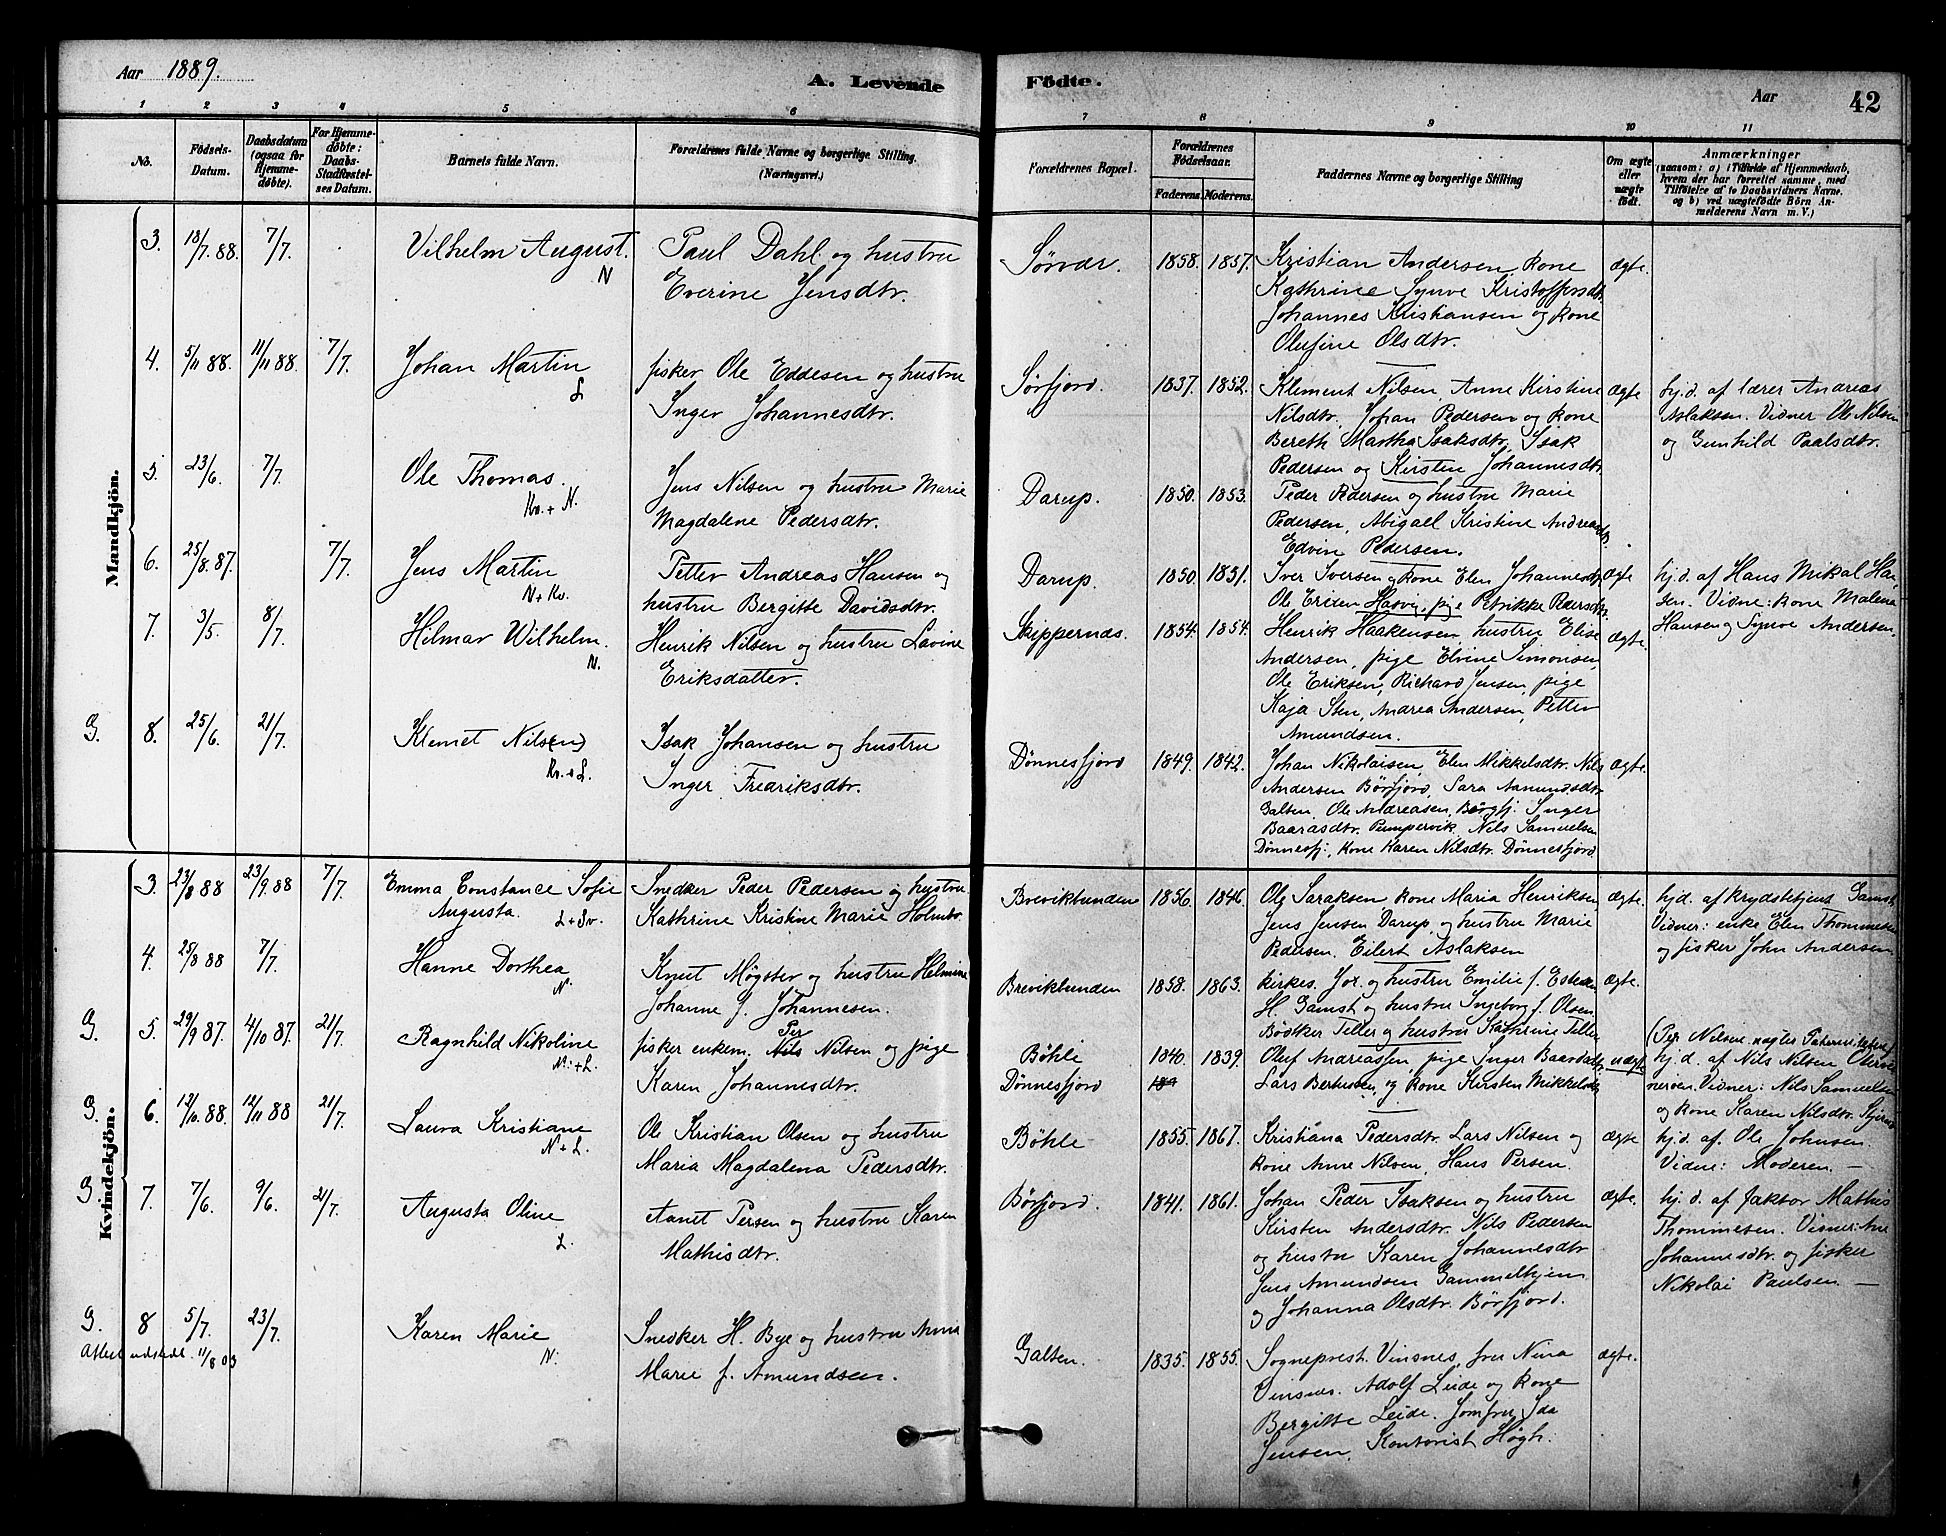 Aar 1889.
A. Levende
Födte.
Aar
42
1 2 3 4 5 6 7 8 9 10 11
No.
Födsels-
Datum.
Daabsdatum
(ogsaa for
Hjemme-
döbte).
For Hjemme-
döbte:
Daabs-
Stadfæstel-
ses Datum.
Barnets fulde Navn.
Forældrenes fulde Navne og borgerlige Stilling.
(Næringsvei.)
Forældrenes Bopæl.
Forældrenes
Födselsaar.
Faderens. Moderens.
Faddernes Navne og borgerlige Stilling
Om ægte
eller
uægte
födt.
Anmærkninger
(saasom: a) i Tilfælde af Hjemmedaab,
hvem der har forrettet samme, med
Tilföielse af to Daabsvidners Navne.
og b) ved uægtefödte Börn An-
melderens Navn m. V.)
Mandkjön.
3. 18/7. 88. 7/7. Vilhelm August. N
Paul Dahl og hustru
Everine Jensdtr.
Sørvær. 1858. 1857.
Kristian Andersen, kone
Kathrine Synve Kristoffersdtr.
Johannes Kristiansen og kone
Olufine Olsdtr.
ægte.
4. 5/11 88. 11/11 88. 7/7. Johan Martin L
fisker Ole Eddesen og hustru
Inger Johannesdtr.
Sørfjord. 1837. 1852.
Klement Nilsen, Anne Kirstine
Nilsdtr, Johan Pedersen og kone
Bereth Martha Isaksdtr, Isak
Pedersen og Kirsten Johannesdtr.
ægte
hj.d. af lærer Andreas
Aslaksen. Vidner Ole Nilsen
og Gunhild Paalsdtr.
5. 23/6. 7/7. Ole Thomas. Kv. + N.
Jens Nilsen og hustru Marie
Magdalene Pedersdtr.
Darup. 1850. 1853.
Peder Pedersen og hustru Marie
Pedersen, Abigael Kristine Andreasdtr.
Edvin Pedersen.
6. 25/8. 87. 7/7. Jens Martin N + Kv.
Petter Andreas Hansen og
hustru Bergitte Davidsdtr.
Darup. 1850. 1851.
Iver Iversen og kone Elen Johannesdtr,
Ole Eriken Hasvig, pige Petrikke Pedersdtr.
ægte
hj.d. af Hans Mikal Han-
sen. Vidne: kone Malena
Hansen og Synve Andersen.
7. 3/5. 8/7. Hilmar Wilhelm. N.
Henrik Nilsen og hustru Lavine
Eriksdatter.
Skippernds. 1854. 1854.
Henrik Haakensen, hustru Elise
Andersen, pige Elvine Simonsen,
Ole Eriksen, Richard Jensen, pige
Kaja Sten, Andrea Andersen, Petter
Amundsen.
ægte.
G. 8. 25/6. 21/7. Klemet Nils(en) Kv. + L.
Isak Johansen og hustru
Inger Fredriksdtr.
Dönnesfjord 1849. 1842.
Johan Nikolaisen, Elen Mikkelsdtr. Nils
Andersen Börfjord, Sara Aamundsdtr
Galten, Ole Andreasen, Børfj. Inger
Baarasdtr. Pumpervik, Nils Samuelsen
Dönnesfj., kone Karen Nilsdtr. Dönnesfjord
ægte.
Kvindekjön.
3. 23/8 88 23/9. 88 7/7. Emma Constance Sofie
Augusta. L + Sv.
Snedker Peder Pedersen og hustru
Kathrine Kristine Marie Holmbo.
Brevikbunden 1856. 1846.
Ole Isaksen, kone Maria Henriksen,
Jens Jensen Darup, og hustru Marie
Pedersen, Eilert Aslaksen
ægte.
hjd. af krydsbetjent Gamst.
Vidner: enke Elen Thommesen
og fisker John Andersen
4. 25/8 88 7/7. Hanne Dorthea N.
Knut Møgster og hustru Helmine
Johanne f. Johannesen.
Brevikbunden 1858. 1863.
Kirkes. Jor. og hustru Emilie f. Estensen
H. Gamst og hustru Ingeborg f. Olsen.
Bödker Teller og hustru Kathrine Teller
ægte.
G. 5. 29/9 87. 4/10 87. 21/7. Ragnhild Nikoline N. + L.
fisker enkem. Nils Per Nilsen og pige
Karen Johannesdtr.
Böhle 1840. 1839.
Dönnesfjord
Oluf Andreassen, pige Inger Baardsdtr,
Lars Bertersen, og kone Kirsten Mikkelsdtr
uægte
(Per Nilsen nægter Paterniteten)
hj.d. af Nils Nilsen
Vidner: Nils Samuelsen
og kone Karen Nilsdtr.
G. 6. 12/10. 88 12/11 88 21/7. Laura Kristiane N + L.
Ole Kristian Olsen og hustru
Maria Magdalena Pedersdtr.
Böhle 1855. 1867.
Kristiana Pedersdtr. Lars Nilsen og
kone Anne Nilsen, Hans Persen.
ægte
hj.d. af. Ole Johnsen
Vidne: Moderen. —
G. 7. 7/6. 9/6. 21/7. Augusta Oline L.
Aanet Persen og hustru Karen
Mathisdtr.
Börfjord. 1841. 1861.
Johan Peder Isaksen og hustru
Kirsten Andersdtr. Nils Pedersen
og hustru Karen Johannesdtr
Jens Amundsen Gammelhjem
og Johanna Olsdtr. Börfjord.
ægte.
hj.d. af faktor Mathis
Thommesen. Vidner: Ane
Johannesdtr. og fisker
Nikolai Paulsen —
G. 8 5/7. 23/7. Karen Marie N.
Attest udstedt. 11/8 03
Snedker H. Bye og hustru Anna
Marie f. Amundsen.
Galten. 1835. 1855.
Sogneprest Vinsnes, fru Nina
Vinsnes. Adolf Leide og kone
Bergitte Leide. Jomfru Ida
Jensen, Kontorist Høgh.
ægte.